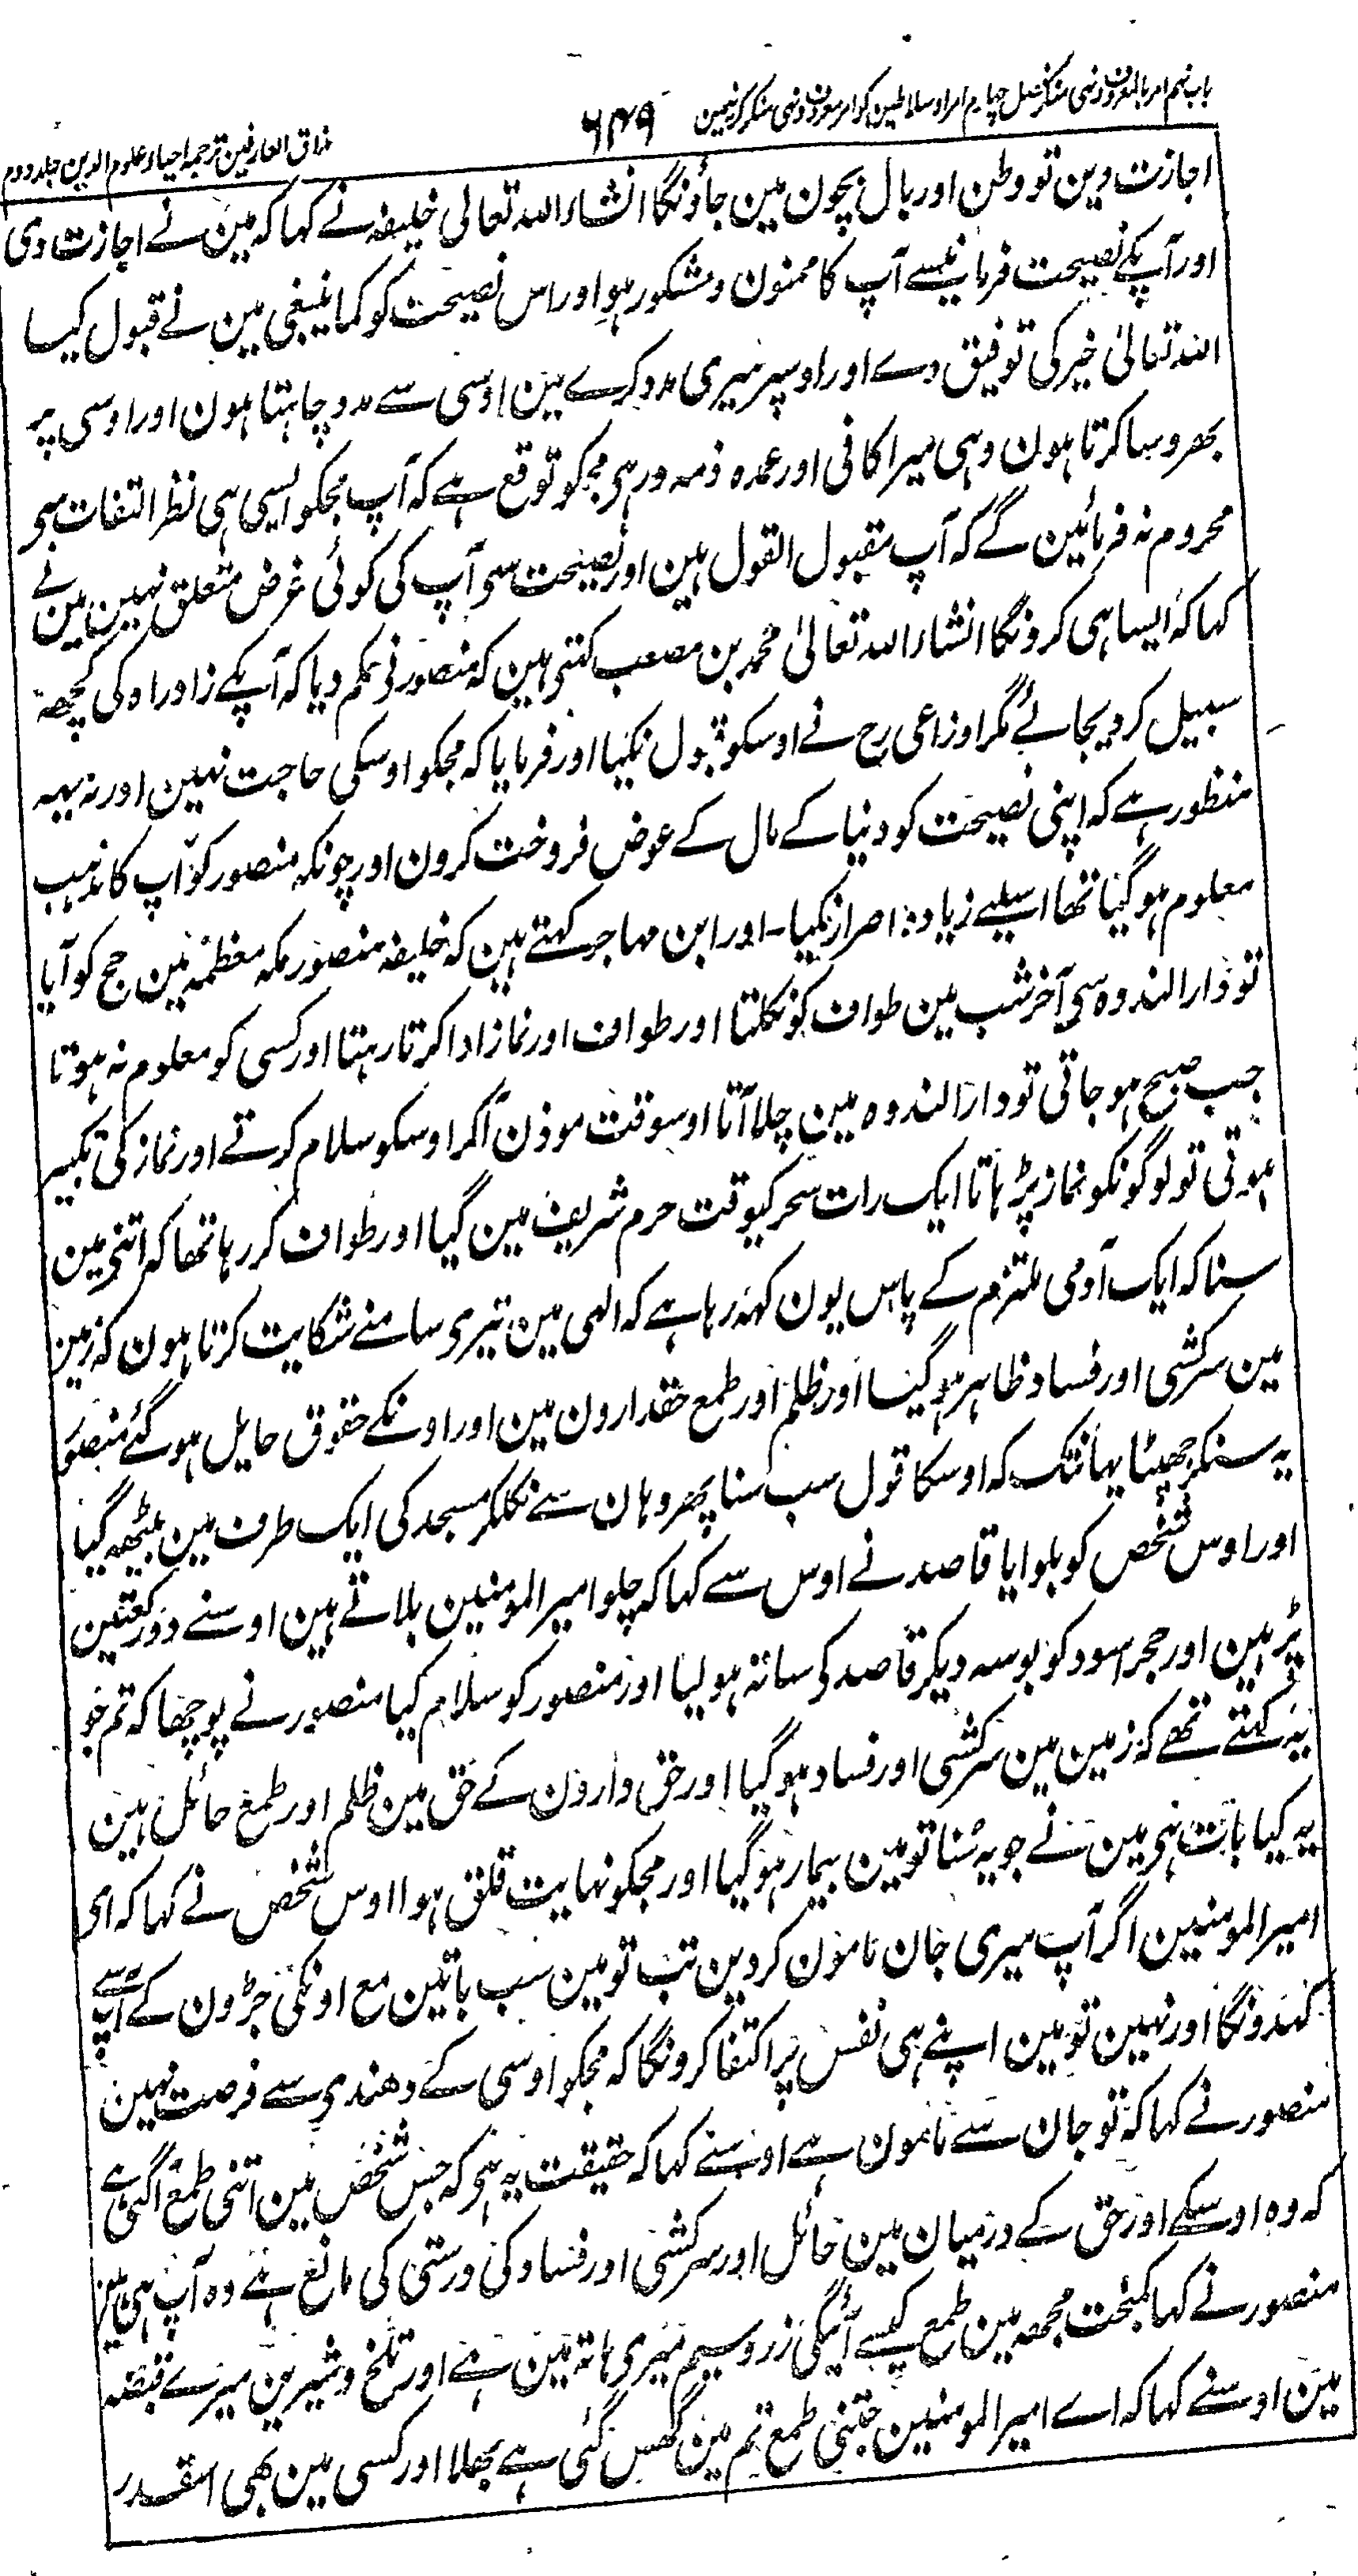 باب نہم امر بالمعروف ونہی منکر فصل چہارم امرا وسلاطین کو امر معروف ونہی منکر کرنیمین
۶۴۹
مذاق العارفین ترجمہ احیاء علوم الدین جلد دوم
اجازت دین تو وطن اور بال بچون مین جاؤنگا انشاء اللہ تعالی خلیفہ نے کہا کہ مین نے اجازت دی
اور آپکے نصیحت فرمانیسے آپ کا ممنون ومشکور ہوا اور اس نصیحت کو کما ینبغی مین نے قبول کیا
اللہ تعالیٰ خیر کی توفیق دے اور اوسپر میری مدد کرے مین اوسی سے مدد چاہتا ہون اور اوسی پر
بھروسا کرتا ہون وہی میرا کافی اور عمدہ ذمہ ور ہی مجکو توقع ہے کہ آپ مجکو ایسی ہی نظر التفات سی
محروم نہ فرمائین گے کہ آپ مقبول القول ہین اور نصیحت سے آپ کی کوئی غرض متعلق نہین مین نے
کہا کہ ایسا ہی کرونگا انشاء اللہ تعالیٰ محمد بن مصعب کہتے ہین کہ منصور نے حکم دیا کہ آپکے زاد راہ کی کچھ
سبیل کردیجائے مگر اوزاعی رح نے اوسکو قبول نکیا اور فرمایا کہ مجکو اوسکی حاجت نہین اور نہ یہہ
منظور ہے کہ اپنی نصیحت کو دنیا کے مال کے عوض فروخت کرون اور چونکہ منصور کو آپ کا مذہب
معلوم ہوگیا تھا اسلیے زیادہ اصرار نکیا۔ اور ابن مہاجر کہتے ہین کہ خلیفہ منصور مکہ معظمہ مین حج کو آیا
تو دار الندوہ سی آخر شب مین طواف کو نکلتا اور طواف اور نماز ادا کرتا رہتا اور کسی کو معلوم نہ ہوتا
جب صبح ہو جاتی تو دار الندوہ مین چلا آتا اوسوقت موذن آکر اوسکو سلام کرتے اور نماز کی تکبیر
ہوتی تو لوگونکو نماز پڑہاتا ایک رات سحر کیوقت حرم شریف مین گیا اور طواف کر رہا تھا کہ اتنی مین
سنا کہ ایک آدمی ملتزم کے پاس یون کہہ رہا ہے کہ الہی مین تیری سامنے شکایت کرتا ہون کہ زمین
مین سرکشی اور فساد ظاہر ہوگیا اور ظلم اور طمع حقدارون مین اور اونکے حقوق حایل ہوگئے منصور
یہ سنکر جھپٹا یہانتک کہ اوسکا قول سب سنا پھر وہان سے نکلکر مسجد کی ایک طرف مین بیٹھہ گیا
اور اوس شخص کو بلوایا قاصد نے اوس سے کہا کہ چلو امیر المومنین بلاتے ہین اوسنے دو رکعتین
پڑہین اور حجر اسود کو بوسہ دیکر قاصد کو ساتہ ہولیا اور منصور کو سلام کیا منصور نے پوچھا کہ تم جو
یہ کہتے تھے کہ زمین مین سرکشی اور فساد ہوگیا اور حق دارون کے حق مین ظلم اور طمع حائل ہین
یہ کیا بات ہی مین نے جو یہ سنا تو مین بیمار ہوگیا اور مجکو نہایت قلق ہوا اوس شخص نے کہا کہ ای
امیر المومنین اگر آپ میری جان مامون کردین تب تو مین سب باتین مع اونکی جڑون کے آپسے
کہدونگا اور نہین تو مین اپنے ہی نفس پر اکتفا کرونگا کہ مجکو اوسی کے دھندی سے فرصت نہین
منصور نے کہا کہ تو جان سے مامون ہے اوسنے کہا کہ حقیقت یہ ہی کہ جس شخص مین اتنی طمع آگئی ہے
کہ وہ اوسکے اور حق کے درمیان مین حائل اور سرکشی اور فساد کی درستی کی مانع ہے وہ آپ ہی ہین
منصور نے کہا کمبخت مجھہ مین طمع کیسے آئیگی زر وسیم میری ہاتہ مین ہے اور تلخ وشیرین میرے قبضہ
مین اوسنے کہا کہ اے امیر المومنین جتنی طمع تم مین گھس گئی ہے بھلا اور کسی مین بھی اسقدر